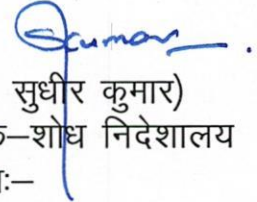 Skumar
सुधीर कुमार)
क–शोध निदेशालय
:–